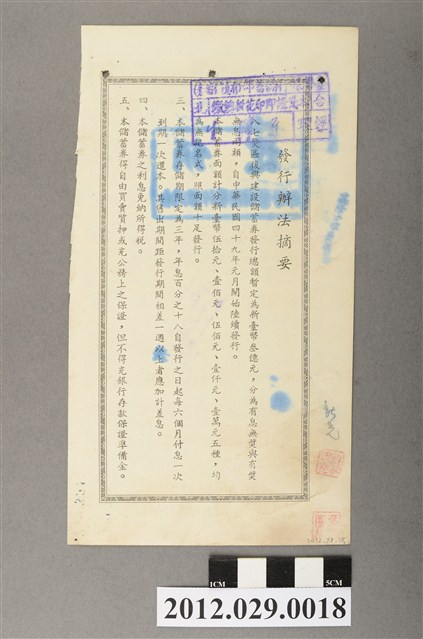 發行辦法摘要
八七災區復興建設儲蓄券發行總額暫定為新臺幣叁億元，分為有息無獎與有獎
無息兩類，自中華民國四十九年元月開始陸續發行。
本儲蓄券面額計分新臺幣伍拾元、壹佰元、伍佰元、壹仟元、壹萬元五種，均
為無記名式，照面額十足發行。
三、本儲蓄券存儲期限定為三年，年息百分之十八自發行之日起每六個月付息一次
到期一次還本。其售出期間距發行期間相差一週以上者應加計差息。
四、本儲蓄券之利息免納所得稅。
五、本儲蓄券得自由買賣質押或充公務上之保證，但不得充銀行存款保證準備金。
1CM
5CM
2012.029.0018